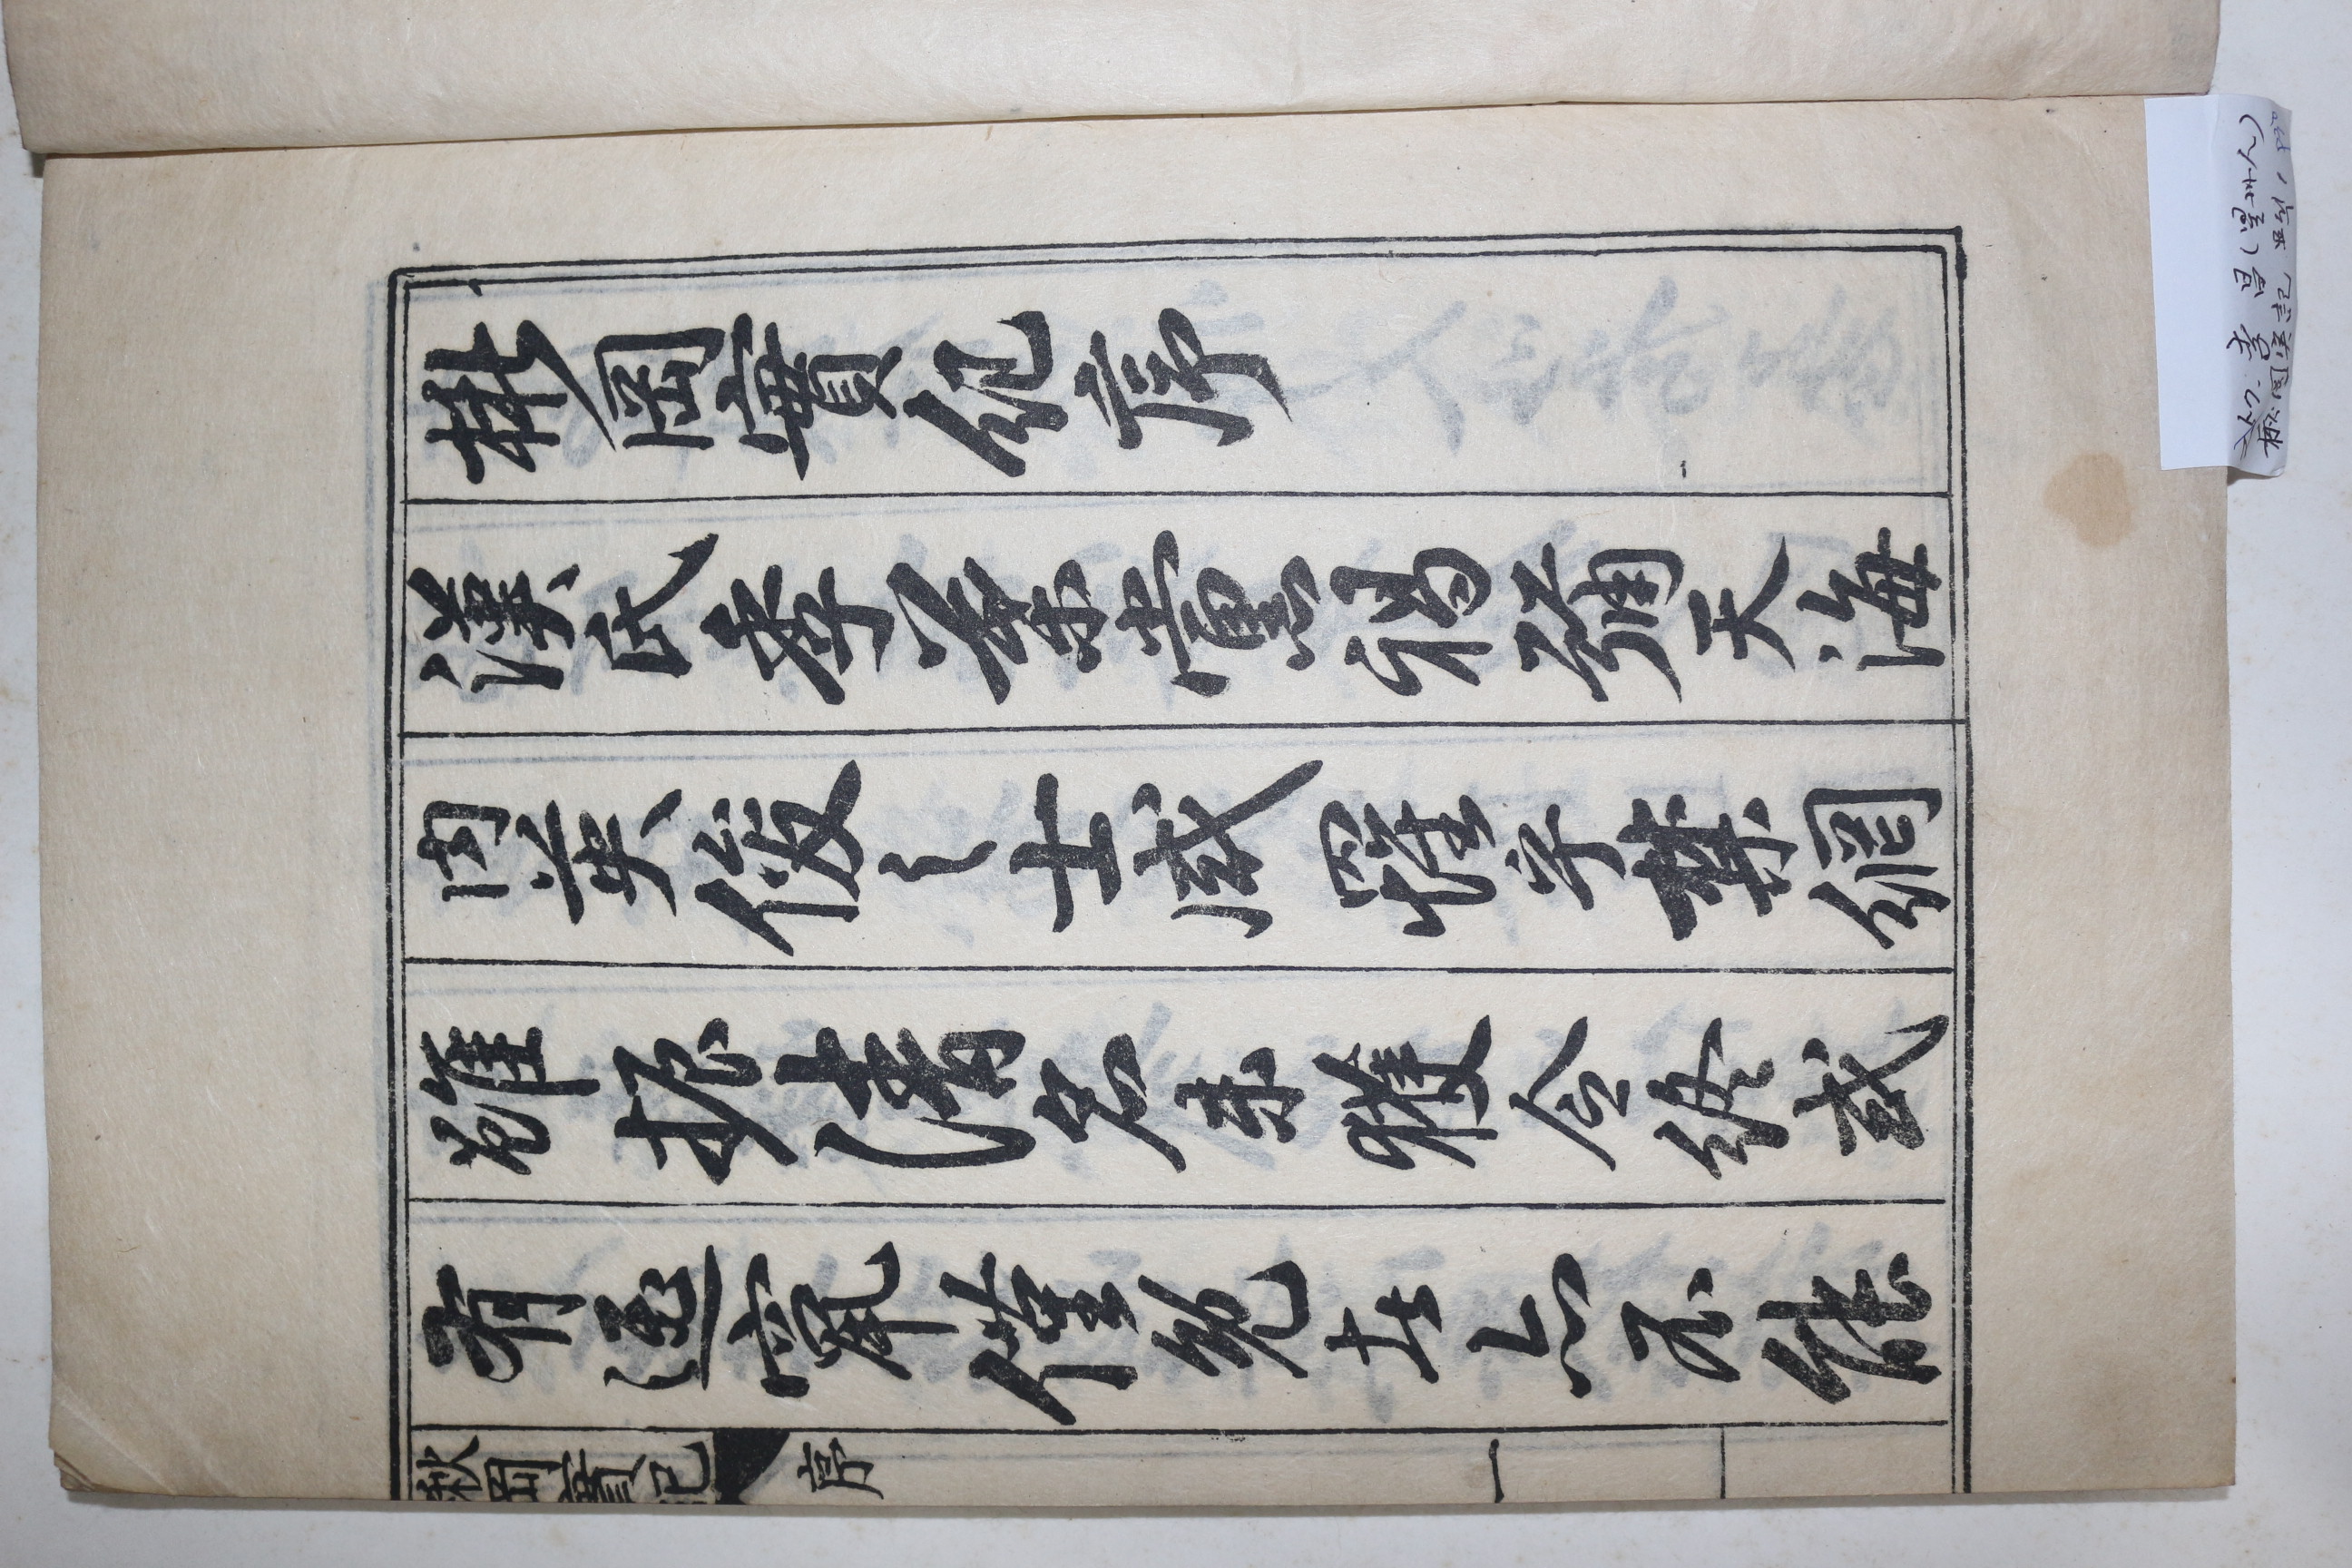 楸岡實紀序
漢氏季葉黨禍彌天海
内英俊之士咸罹乎禁網
雖振清名未獲令終或
有竄僅免者亦不能
秋岡實記 序 一
李 昌(星州人)
楸岡実記